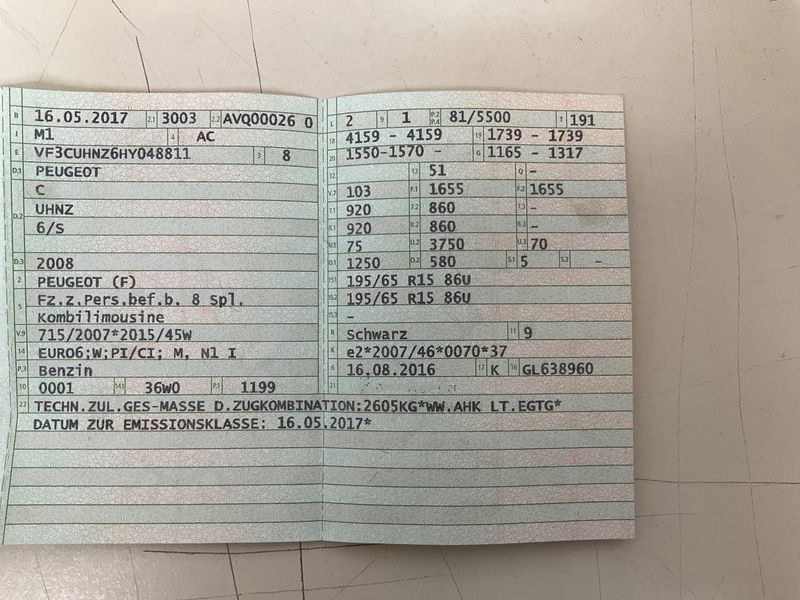 B 16.05.2017 2.1 3003 2.2 AVQ00026 0
J M1 4 AC
E VF3CUHNZ6HY048811 3 8
D.1 PEUGEOT
C
D.2 UHNZ
6/S
D.3 2008
2 PEUGEOT (F)
5 Fz.z.Pers.bef.b. 8 Spl.
Kombilimousine
V.9 715/2007*2015/45W
14 EURO6;W;PI/CI; M, N1 I
P.3 Benzin
10 0001 14.1 36W0 P.1 1199
L 2 9 1 P.2 P.4 81/5500 T 191
18 4159 - 4159 19 1739 - 1739
20 1550-1570 - G 1165 - 1317
12 13 51 Q -
V.7 103 F.1 1655 F.2 1655
7.1 920 7.2 860 7.3 -
8.1 920 8.2 860 8.3 -
U.1 75 U.2 3750 U.3 70
O.1 1250 O.2 580 S.1 5 S.2 -
15.1 195/65 R15 86U
15.2 195/65 R15 86U
15.3 -
R Schwarz 11 9
K e2*2007/46*0070*37
6 16.08.2016 17 K 16 GL638960
21
22 TECHN.ZUL.GES-MASSE D.ZUGKOMBINATION:2605KG*WW.AHK LT.EGTG*
DATUM ZUR EMISSIONSKLASSE: 16.05.2017*